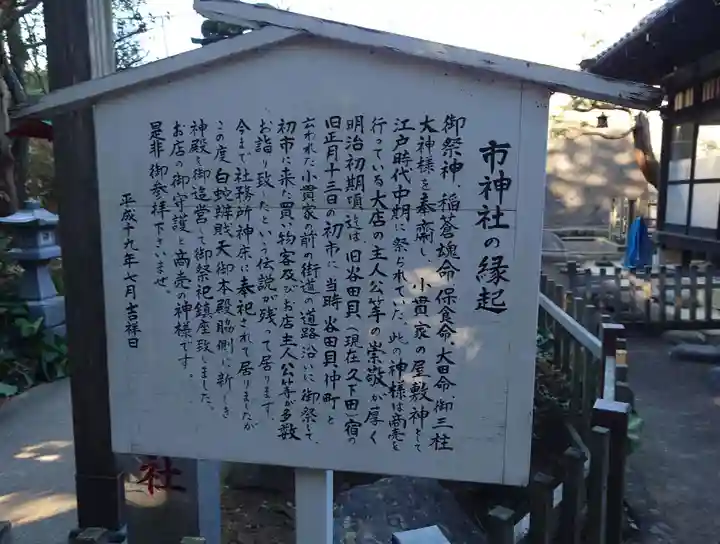 市神社の縁起
御祭神、稲蒼魂命、保食命、大田命、御三柱
大神様を奉斎し、小貫家の屋敷神として
江戸時代中期に祭られていた、此の神様は商売を
行っている大店の主人公等の崇敬が厚く
明治初期頃迄は旧谷田貝(現在久下田)宿の
旧正月十三日の初市に、当時、谷田貝仲町と
云われた小貫家の前の街道の道路沿いに御祭して、
初市に来た買い物客及びお店主人公等が多数
お詣り致したという伝説が残って居ります。
今まで社務所神床に奉祀されて居りましたが
この度白蛇辯戝天御本殿脇側に新しき
神殿を御造営して御祭祀鎮座致しました。
お店の御守護と商売の神様です。
是非御参拝下さいませ。
平成十九年七月吉祥日
社